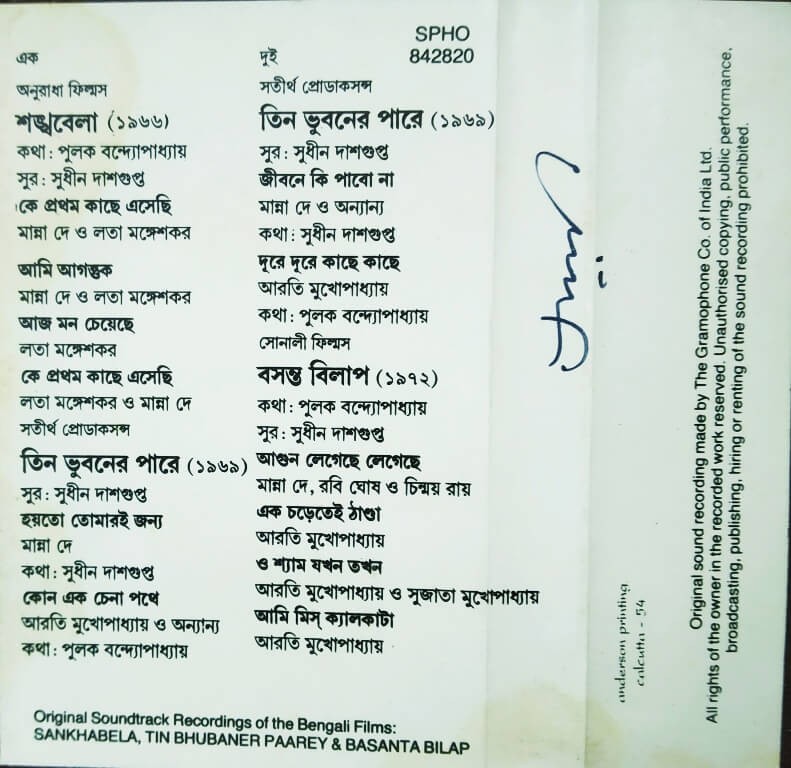 SPHO
842820
এক
অনুরাধা ফিল্মস
শঙ্খবেলা (১৯৬৬)
কথা : পুলক বন্দ্যোপাধ্যায়
সুর : সুধীন দাশগুপ্ত
কে প্রথম কাছে এসেছি
মান্না দে ও লতা মঙ্গেশকর
আমি আগন্তুক
মান্না দে ও লতা মঙ্গেশকর
আজ মন চেয়েছে
লতা মঙ্গেশকর
কে প্রথম কাছে এসেছি
লতা মঙ্গেশকর ও মান্না দে
সতীর্থ প্রোডাকসন্স
তিন ভুবনের পারে (১৯৬৯)
সুর : সুধীন দাশগুপ্ত
হয়তো তোমারই জন্য
মান্না দে
কথা : সুধীন দাশগুপ্ত
কোন এক চেনা পথে
আরতি মুখোপাধ্যায় ও অন্যান্য
কথা : পুলক বন্দ্যোপাধ্যায়
দুই
সতীর্থ প্রোডাকসন্স
তিন ভুবনের পারে (১৯৬৯)
সুর : সুধীন দাশগুপ্ত
জীবনে কি পাবো না
মান্না দে ও অন্যান্য
কথা : সুধীন দাশগুপ্ত
দূরে দূরে কাছে কাছে
আরতি মুখোপাধ্যায়
কথা : পুলক বন্দ্যোপাধ্যায়
সোনালী ফিল্মস
বসন্ত বিলাপ (১৯৭২)
কথা : পুলক বন্দ্যোপাধ্যায়
সুর : সুধীন দাশগুপ্ত
আগুন লেগেছে লেগেছে
মান্না দে, রবি ঘোষ ও চিন্ময় রায়
এক চড়েতেই ঠাণ্ডা
আরতি মুখোপাধ্যায়
ও শ্যাম যখন তখন
আরতি মুখোপাধ্যায় ও সুজাতা মুখোপাধ্যায়
আমি মিস্ ক্যালকাটা
আরতি মুখোপাধ্যায়
Original Soundtrack Recordings of the Bengali Films:
SANKHABELA, TIN BHUBANER PAAREY & BASANTA BILAP
anderson printing
calcutta - 54
Original sound recording made by The Gramophone Co. of India Ltd.
All rights of the owner in the recorded work reserved. Unauthorised copying, public performance,
broadcasting, publishing, hiring or renting of the sound recording prohibited.